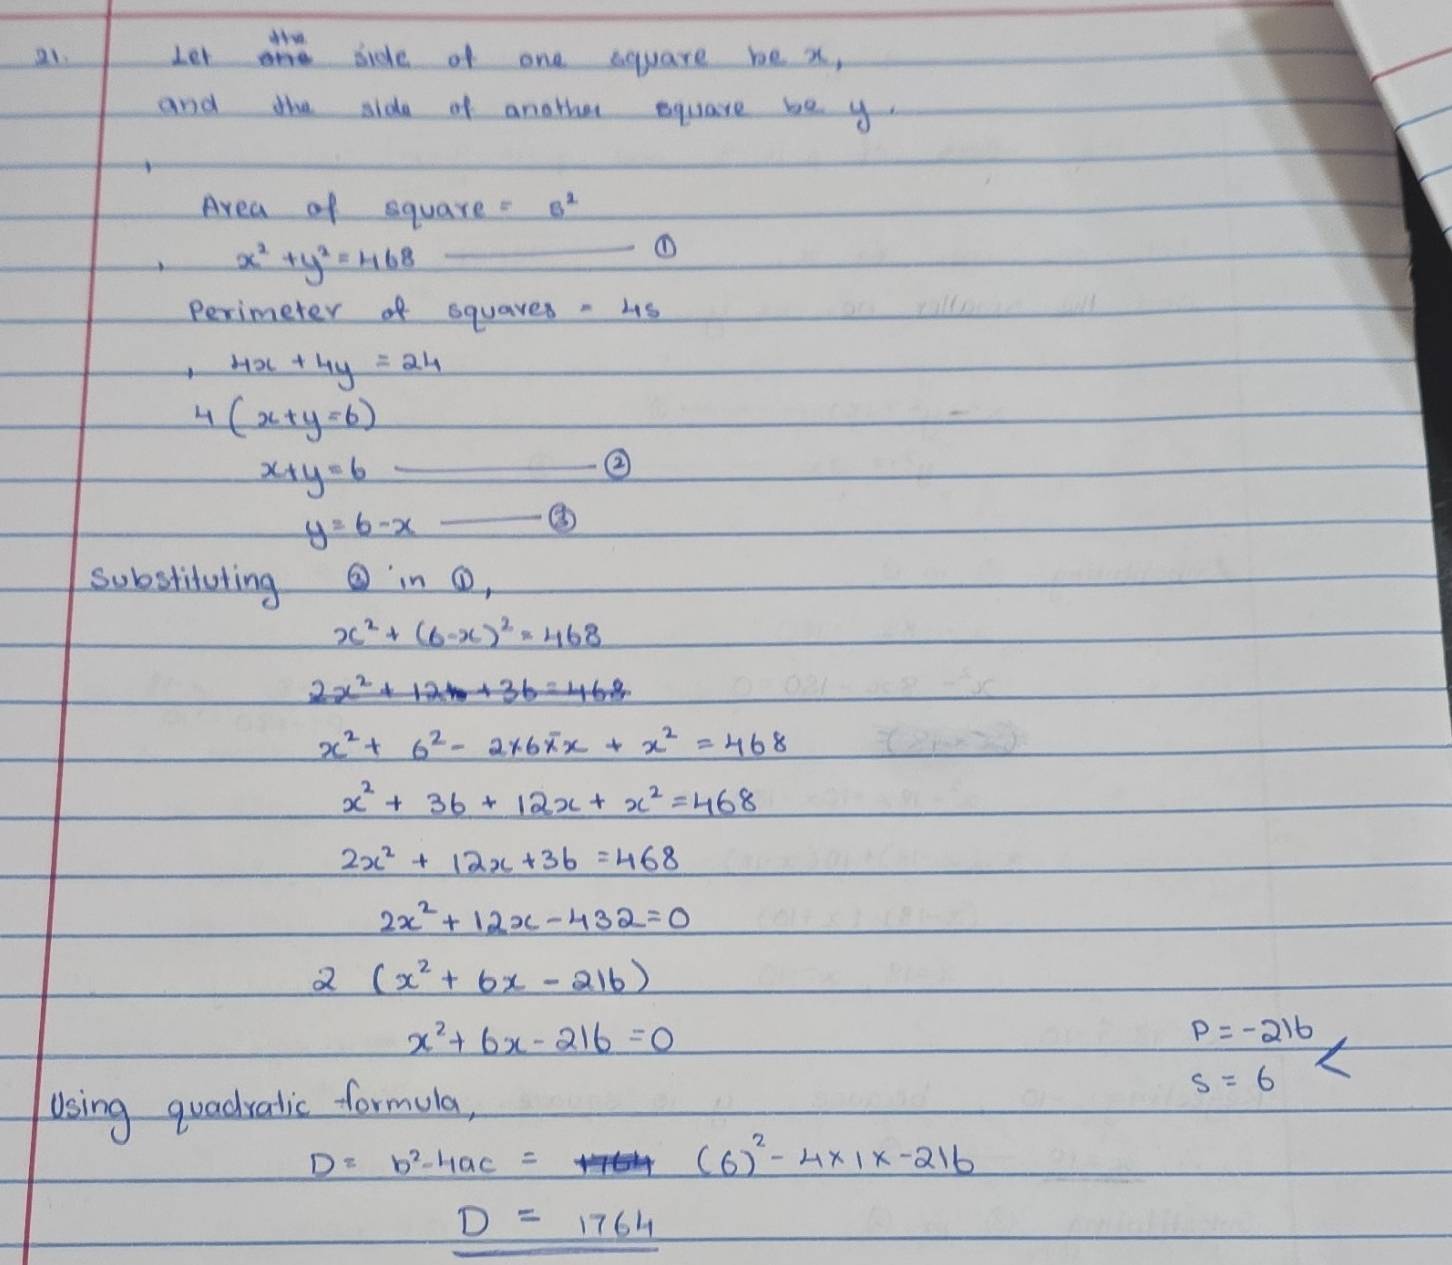 21. Let the side of one square be x,
and the side of another square be y.
Area of square = s²
x² + y² = 468 ——— ①
Perimeter of squares = 4s
, 4x + 4y = 24
4 (x+y=6)
x+y=6 ——— ②
y=6-x ——— ③
Substituting ③ in ①,
x² + (6-x)² = 468
x² + 6² - 2×6×-x + x² = 468
x² + 36 + 12x + x² = 468
2x² + 12x + 36 = 468
2x² + 12x - 432 = 0
2 (x² + 6x - 216)
x² + 6x - 216 = 0
P = -216
S = 6 <
Using quadratic formula,
D = b²-4ac = (6)² - 4×1×-216
D = 1764